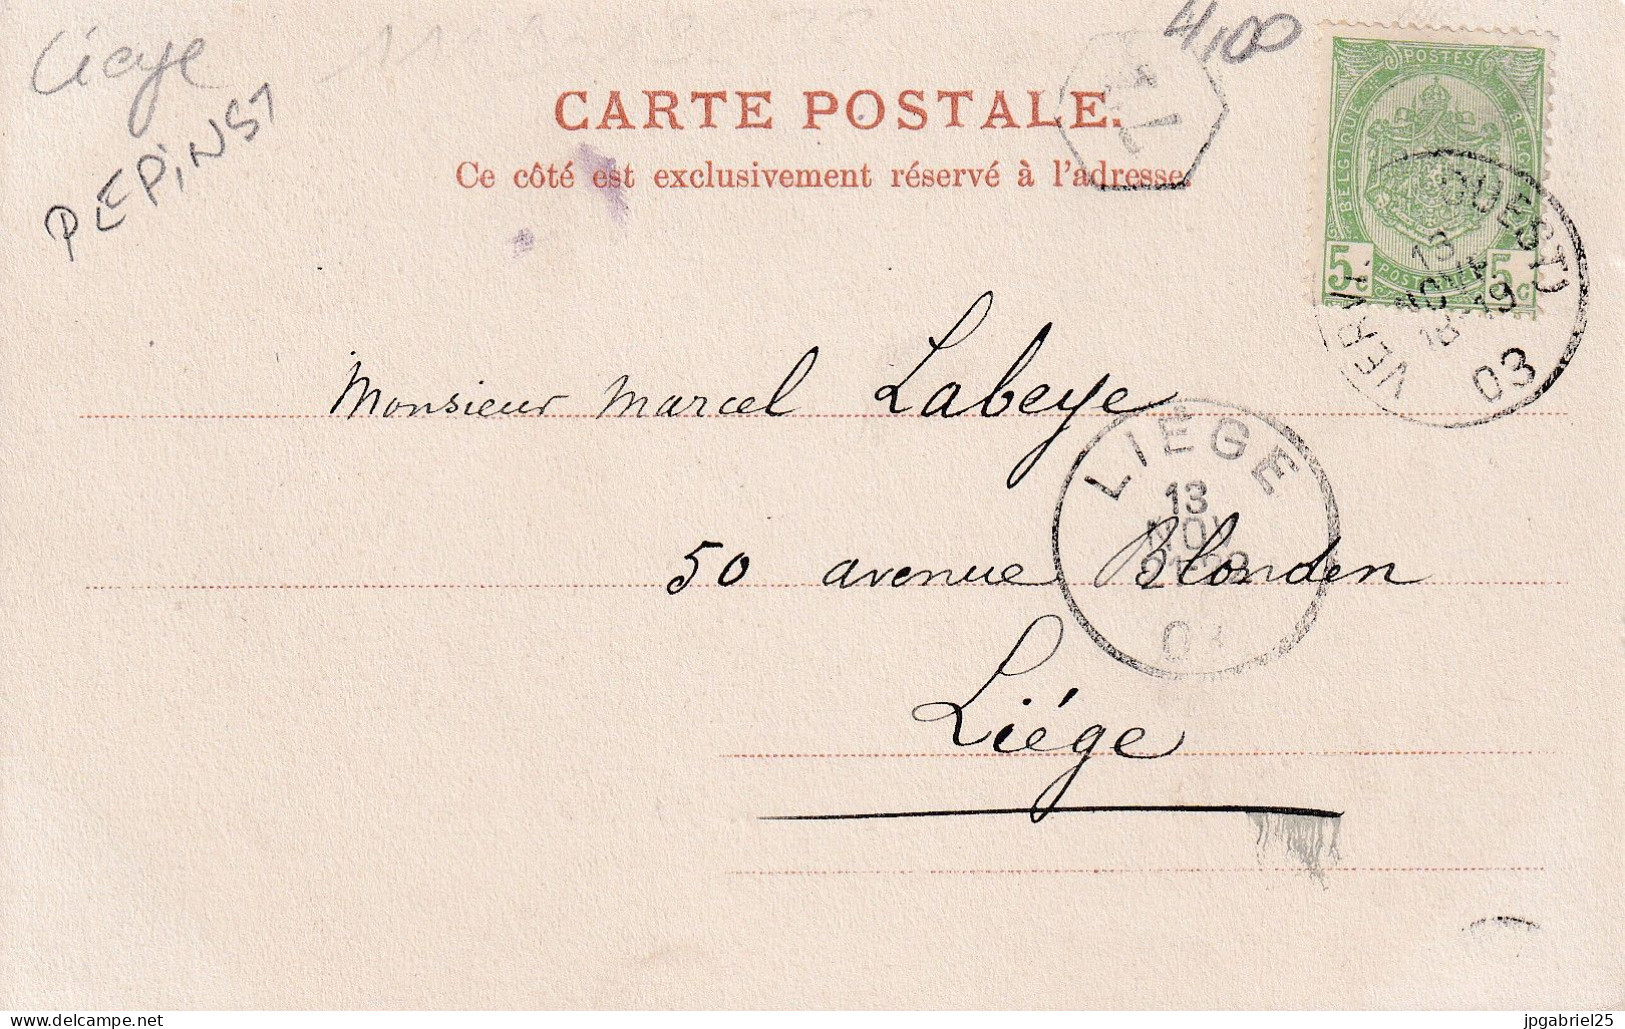 Liège
PEPINST
4,00
CARTE POSTALE.
Ce côté est exclusivement réservé à l'adresse.
POSTES
BELGIQUE
BELGIË
5c 5c
VERVI (OUEST)
13
18-19
03
Monsieur Marcel Labeye
LIÉGE
13
NOV
50 avenue Blonden
Liége
jpgabriel25